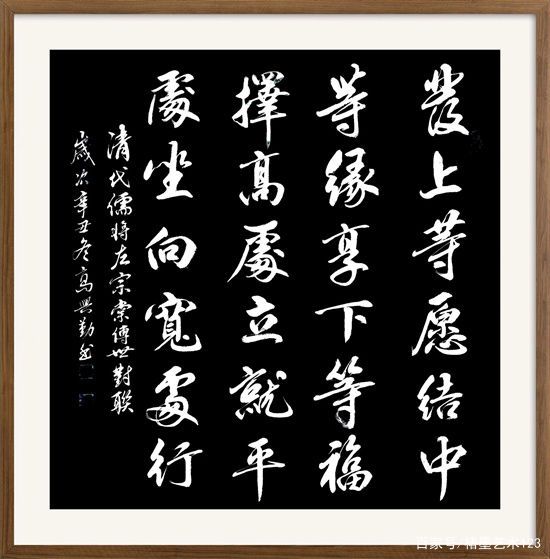 發上等愿结中
等缘享下等福
擇高處立就平
處坐向寬處行
清代儒将左宗棠傳世對聯
歲次辛丑冬高興勤书
百家号/墨艺术123